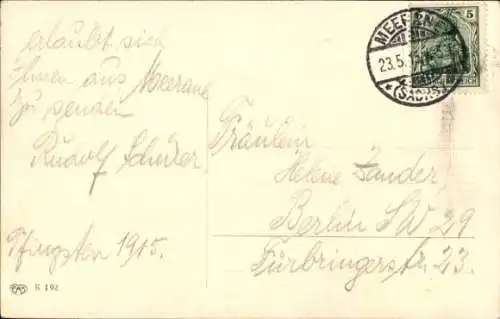 erlaubt sich
Ihnen aus Meerane
zu senden
Rudolf
Pfingsten 1915.
R 192
MEERANE
23.5.15
(SACHS.)
5
Fräulein
Helene Zander,
Berlin SW 29
Fürbringerstr. 23.